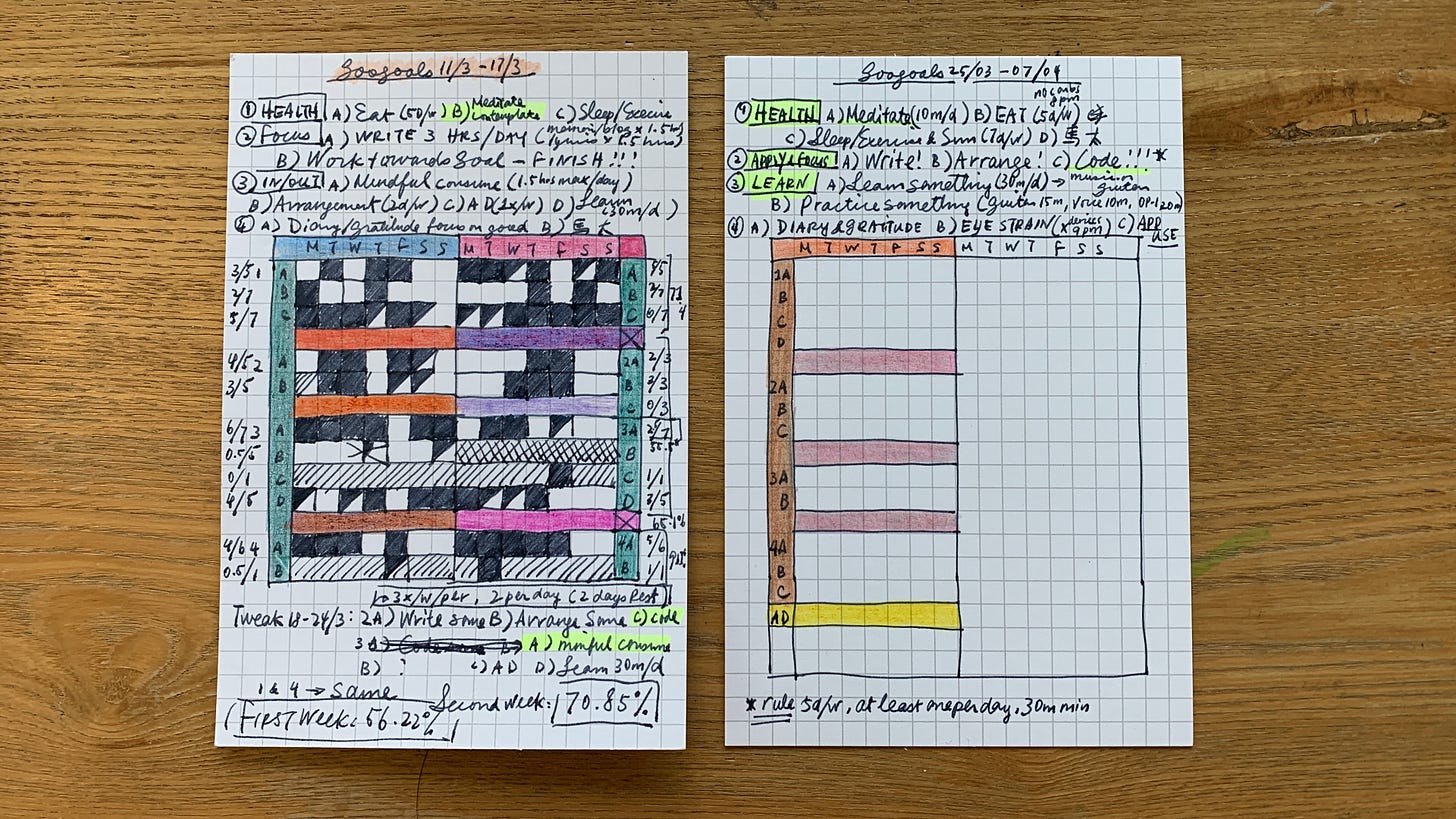 Googoals 11/3 - 17/3
① HEALTH A) Eat (5d/w) B) Meditate contemplate C) Sleep/Exercise
② FOCUS A) WRITE 3 HRS/DAY (memoir/blog x 1.5hrs
B) Work towards Goal - FINISH!!!
③ IN/OUT A) Mindful consume (1.5hrs max/day)
B) Arrangement (2d/w) C) AD (1x/w) D) Learn (30m/d)
④ A) Diary/Gratitude focus on good B) 馬太
M T W T F S S M T W T F S S
3/5 1 A A 4/5
2/7 B B 2/7 71
5/7 C C 6/7 4
4/5 2 A 2A 2/3
3/5 B B 2/3
C 0/3
6/7 3 A 3A 2/7
0.5/5 B B
0/1 C C 1/1
4/5 D D 3/5
65.1%
4/6 4 A 4A 5/6
0.5/1 B B 1/1
→ 3x/w/per, 2 per day (2 days Rest)
Tweak 18-24/3: 2A) Write some B) Arrange Some C) Code
3 A) minful consume
B) ? C) AD D) Learn 30m/d
1 & 4 → same
First Week: 56.22% Second week: 70.85%
Googoals 25/03 - 07/04
① HEALTH A) Meditate (10m/d) B) EAT (5d/w) no carbs 8pm
C) Sleep/Exercise & Sun (7d/w) D) 馬太
② APPLY & FOCUS! A) Write! B) Arrange! C) Code!!!*
③ LEARN A) Learn something (30m/d) → music or guitar
B) Practice something (guitar 15m, voice 10m, OP-1 20m)
④ A) DIARY & GRATITUDE B) EYE STRAIN (x devices 9pm) C) APP USE
M T W T F S S M T W T F S S
1A
B
C
D
2A
B
C
3A
B
4A
B
C
AD
* rule 5d/w, at least one per day, 30m min